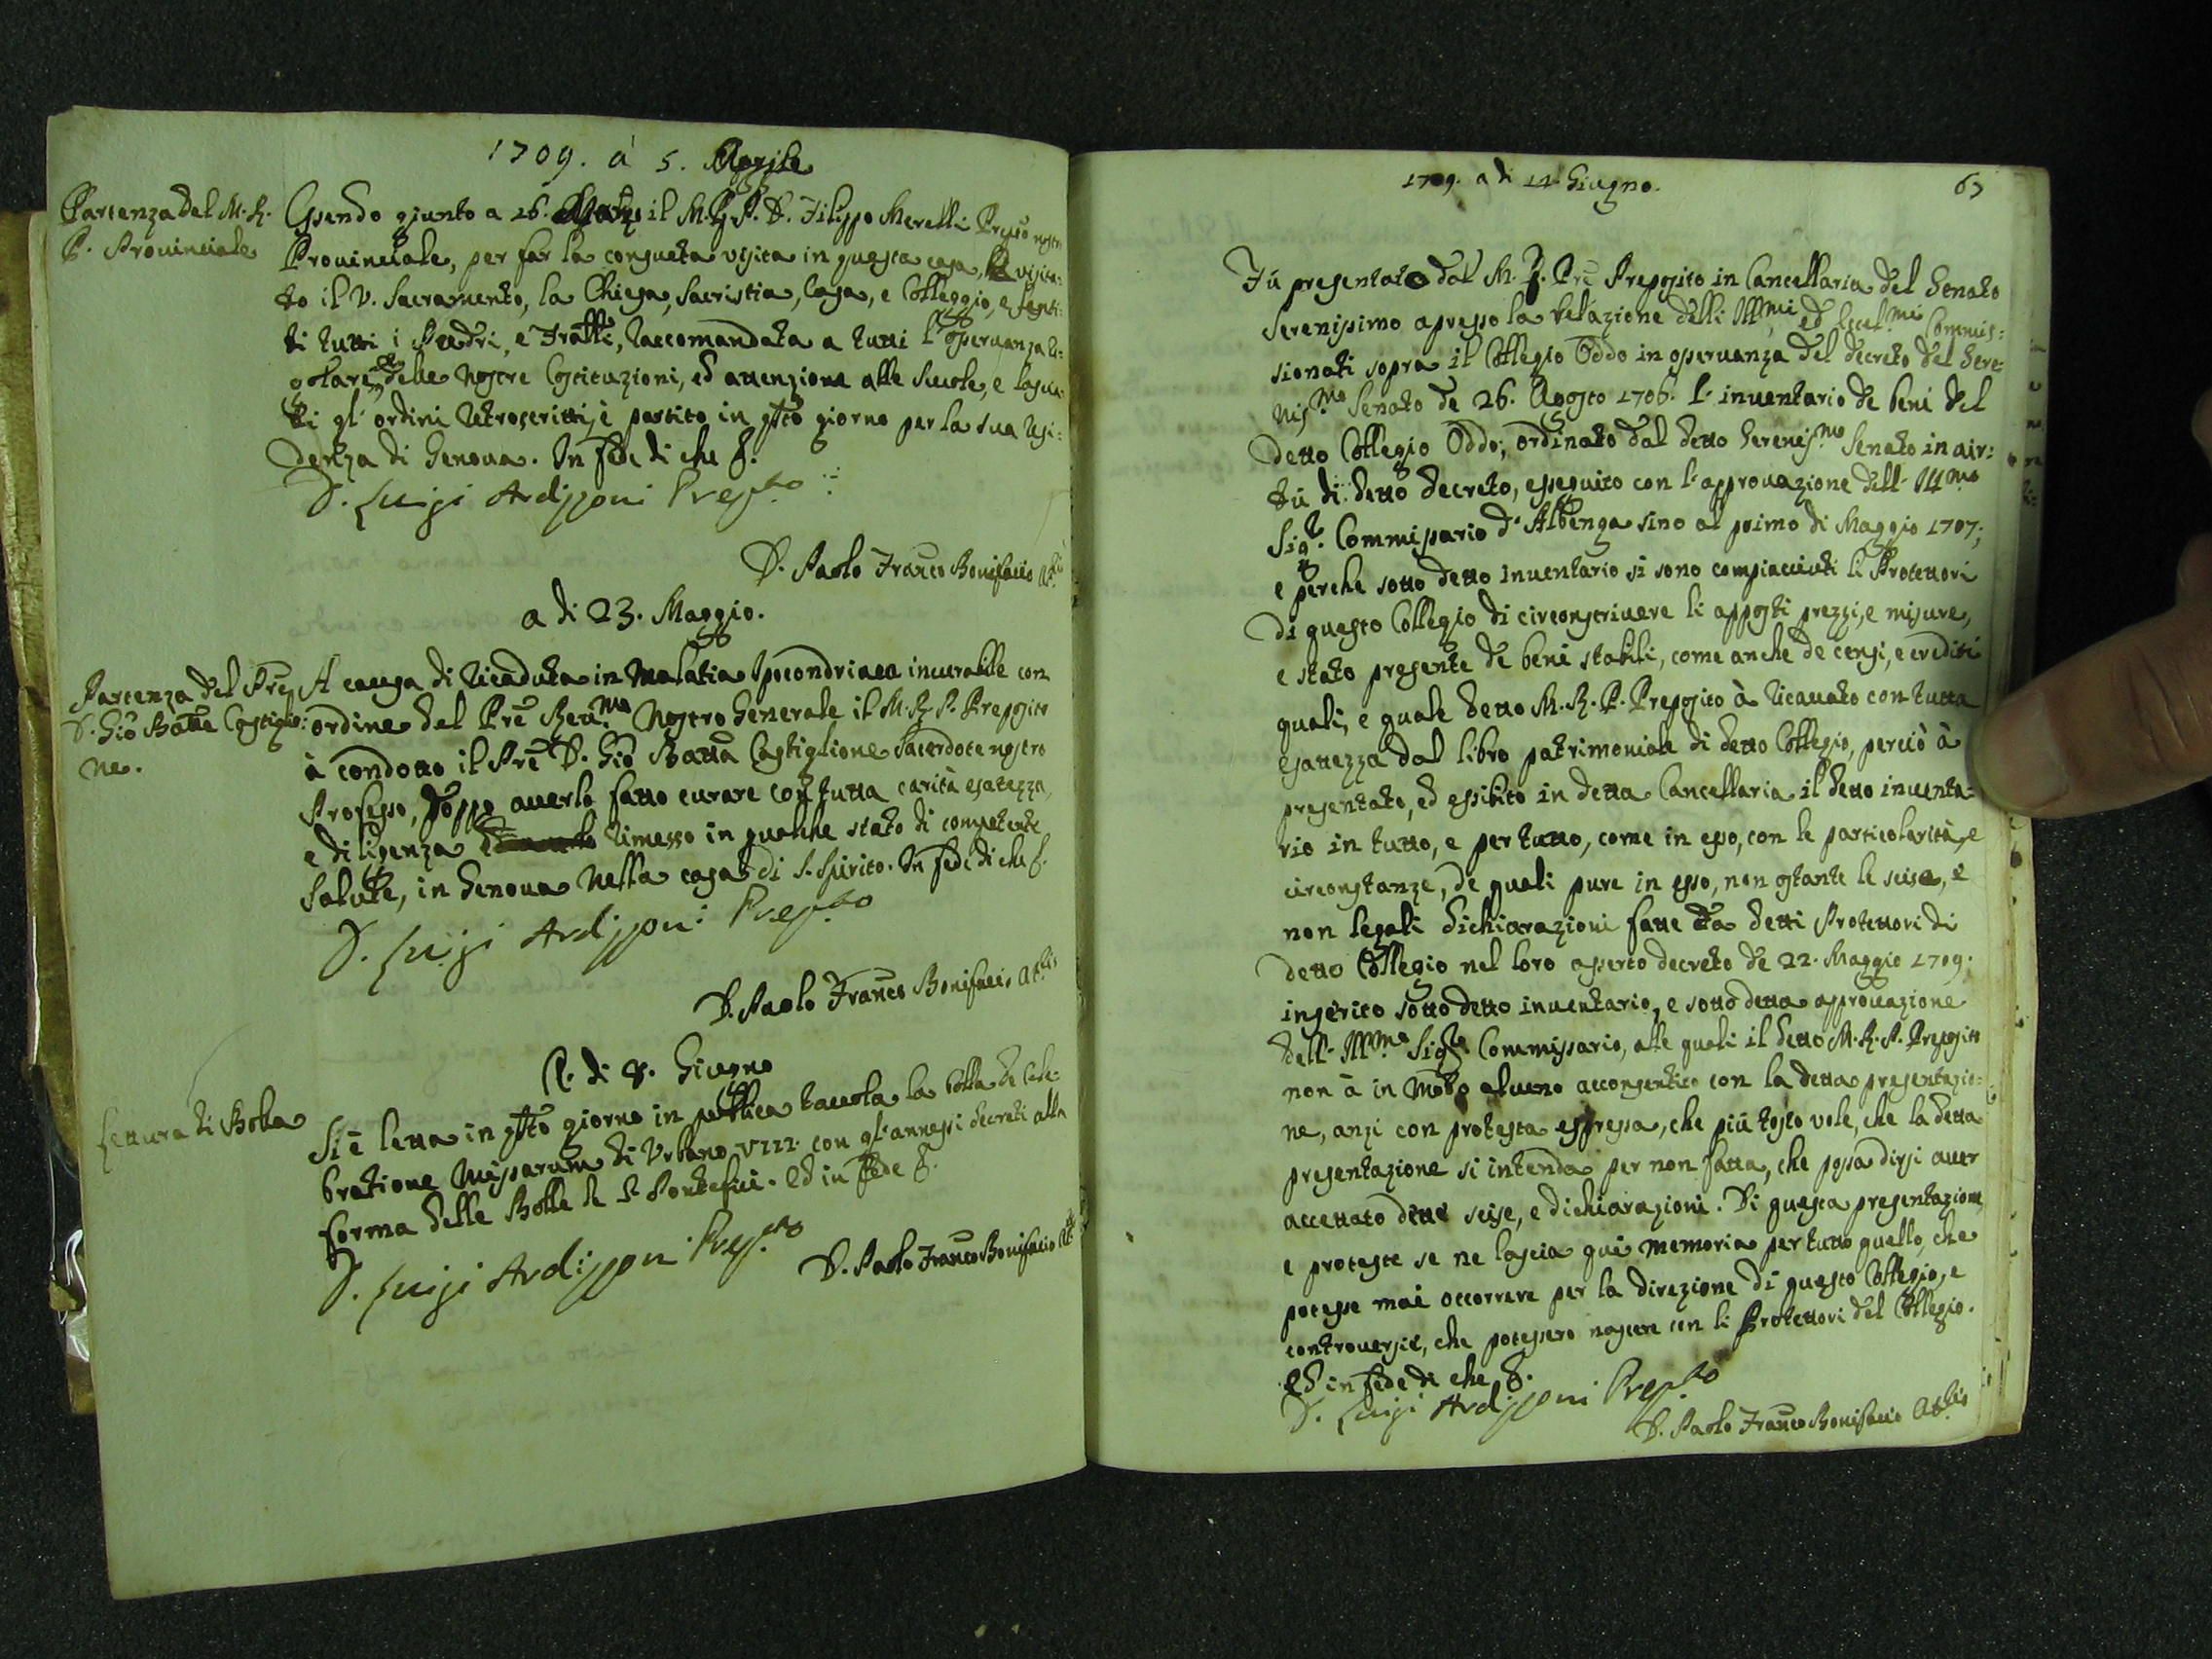 1709. à 5. Aprile
Partenza del M. R.
P. Prouinciale
Essendo giunto a 26. Marzo il M. R. P. D. Filippo Merelli Prep.to nostro
Prouinciale, per far la consueta visita in questa casa, visita:
to il V. Sacramento, la Chiesa, Sacristia, Casa, e Colleggio, e senti:
ti tutti i Padri, e Fratti, raccomandata a tutti l'osseruanza re:
golare delle Nostre Costituzioni, ed attenzione alle scuole, e lascia:
ti gl' ordini retroscritti, è partito in q̃sto giorno per la sua resi:
denza di Genoua. In fede di che &.
D. Luigi Ardizzoni Prep.to
D. Paolo Franco Bonifacio Att.rio
a di 23. Maggio.
Partenza del Prẽ
D. Giõ Batta Castiglio:
ne.
A causa di ricaduta in malatia Ipocondriaca incurabile con
ordine del Prẽ Reu.mo Nostro Generale il M. R. P. Preposito
à condotto il Prẽ D. Giõ Batta Castiglione Sacerdote nostro
Professo, doppo auerlo fatto curare con tutta carità esatezza,
e diligenza rimesso in qualche stato di competente
salute, in Genoua nella casa di S. Spirito. In fede di che &.
D. Luigi Ardizzoni Prep.to
D. Paolo Franco Bonifacio Att.rio
A. di 8. Giugno
Lettura di Bolla
Si è letta in q̃sto giorno in publica tauola la Bolla de Cele:
bratione Missarum di Urbano VIII. con gl' annessi decreti alla
forma delle Bolle de S. Pontefici. Ed in fede &.
D. Luigi Ardizzoni Prep.to
D. Paolo Franco Bonifacio Att.rio
1709. a di 14. Giugno.
67
Fù presentato dal M. R. Prẽ Preposito in Cancellaria del Senato
Serenissimo apresso la relazione delli Ill.mi, ed Eccel.mi Commis:
sionati sopra il Collegio Oddo in osseruanza del decreto del Sere:
nis.mo Senato de 26. Agosto 1706. l' inuentario de beni del
detto Collegio Oddo; ordinato dal detto Serenis.mo Senato in uir:
tù di detto decreto, esseguito con l' approuazione dell' Ill.mo
Sig.r Commissario d' Albenga sino al primo di Maggio 1707;
e perche sotto detto inuentario si sono compiacciuti li Protettori
di questo Collegio di circonscriuere li apposti prezzi, e misure,
e stato presente de beni stabili, come anche de censi, e crediti
quali, e quale detto M. R. P. Preposito à ricauato con tutta
esattezza dal libro patrimoniale di detto Collegio, perciò à
presentato, ed essibito in detta Cancellaria il detto inuenta:
rio in tutto, e per tutto, come in esso, con le particolarità, e
circonstanze, de quali pure in esso, non ostante le scise, e
non legali dichiarazioni fatte da detti Protettori di
detto Collegio nel loro asserto decreto de 22. Maggio 1709.
inserito sotto detto inuentario, e sotto detta approuazione
dell' Ill.mo Sig.r Commissario, alle quali il detto M. R. P. Preposito
non à in modo alcuno acconsentito con la detta presentazio:
ne, anzi con protesta espressa, che più tosto vole, che la detta
presentazione si intenda per non fatta, che possa dirsi auer
accettato dette scise, e dichiarazioni. Di questa presentazione,
e proteste se ne lascia qui memoria per tutto quello, che
potesse mai occorrere per la direzione di questo Collegio, e
controuersie, che potessero nascere con li Protettori del Collegio.
Ed in fede di che &.
D. Luigi Ardizzoni Prep.to
D. Paolo Franco Bonifacio Att.rio